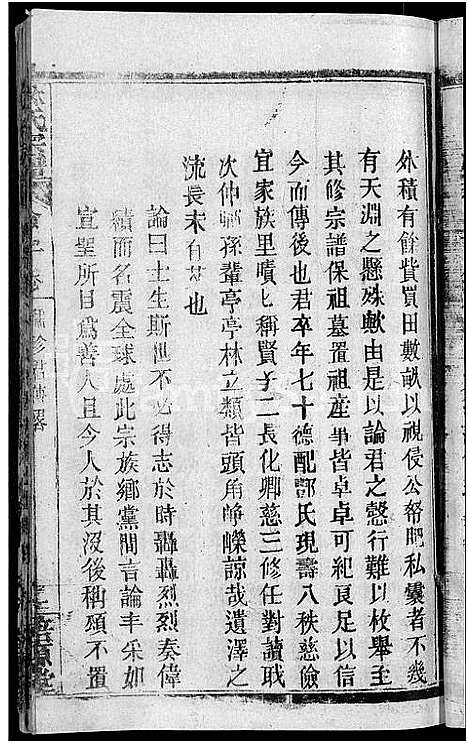 外積有餘貲買田數畝以視侵公帑肥私囊者不幾
有天淵之懸殊歟由是以論君之懿行難以枚舉至
其修宗譜保祖墓置祖產事皆卓卓可紀良足以信
今而傳後也君卒年七十德配鄧氏現壽八秩慈儉
宜家族里嘖〻稱賢子二長化卿慈三修任對讀職
次仲卿孫輩亭亭林立類皆頭角崢嶸諒哉遺澤之
流長未有艾也
論曰士生斯世不必得志於時轟轟烈烈奏偉
績而名震全球處此宗族鄉黨間言論丰采如
宣聖所目為善人且今人於其沒後稱頌不置